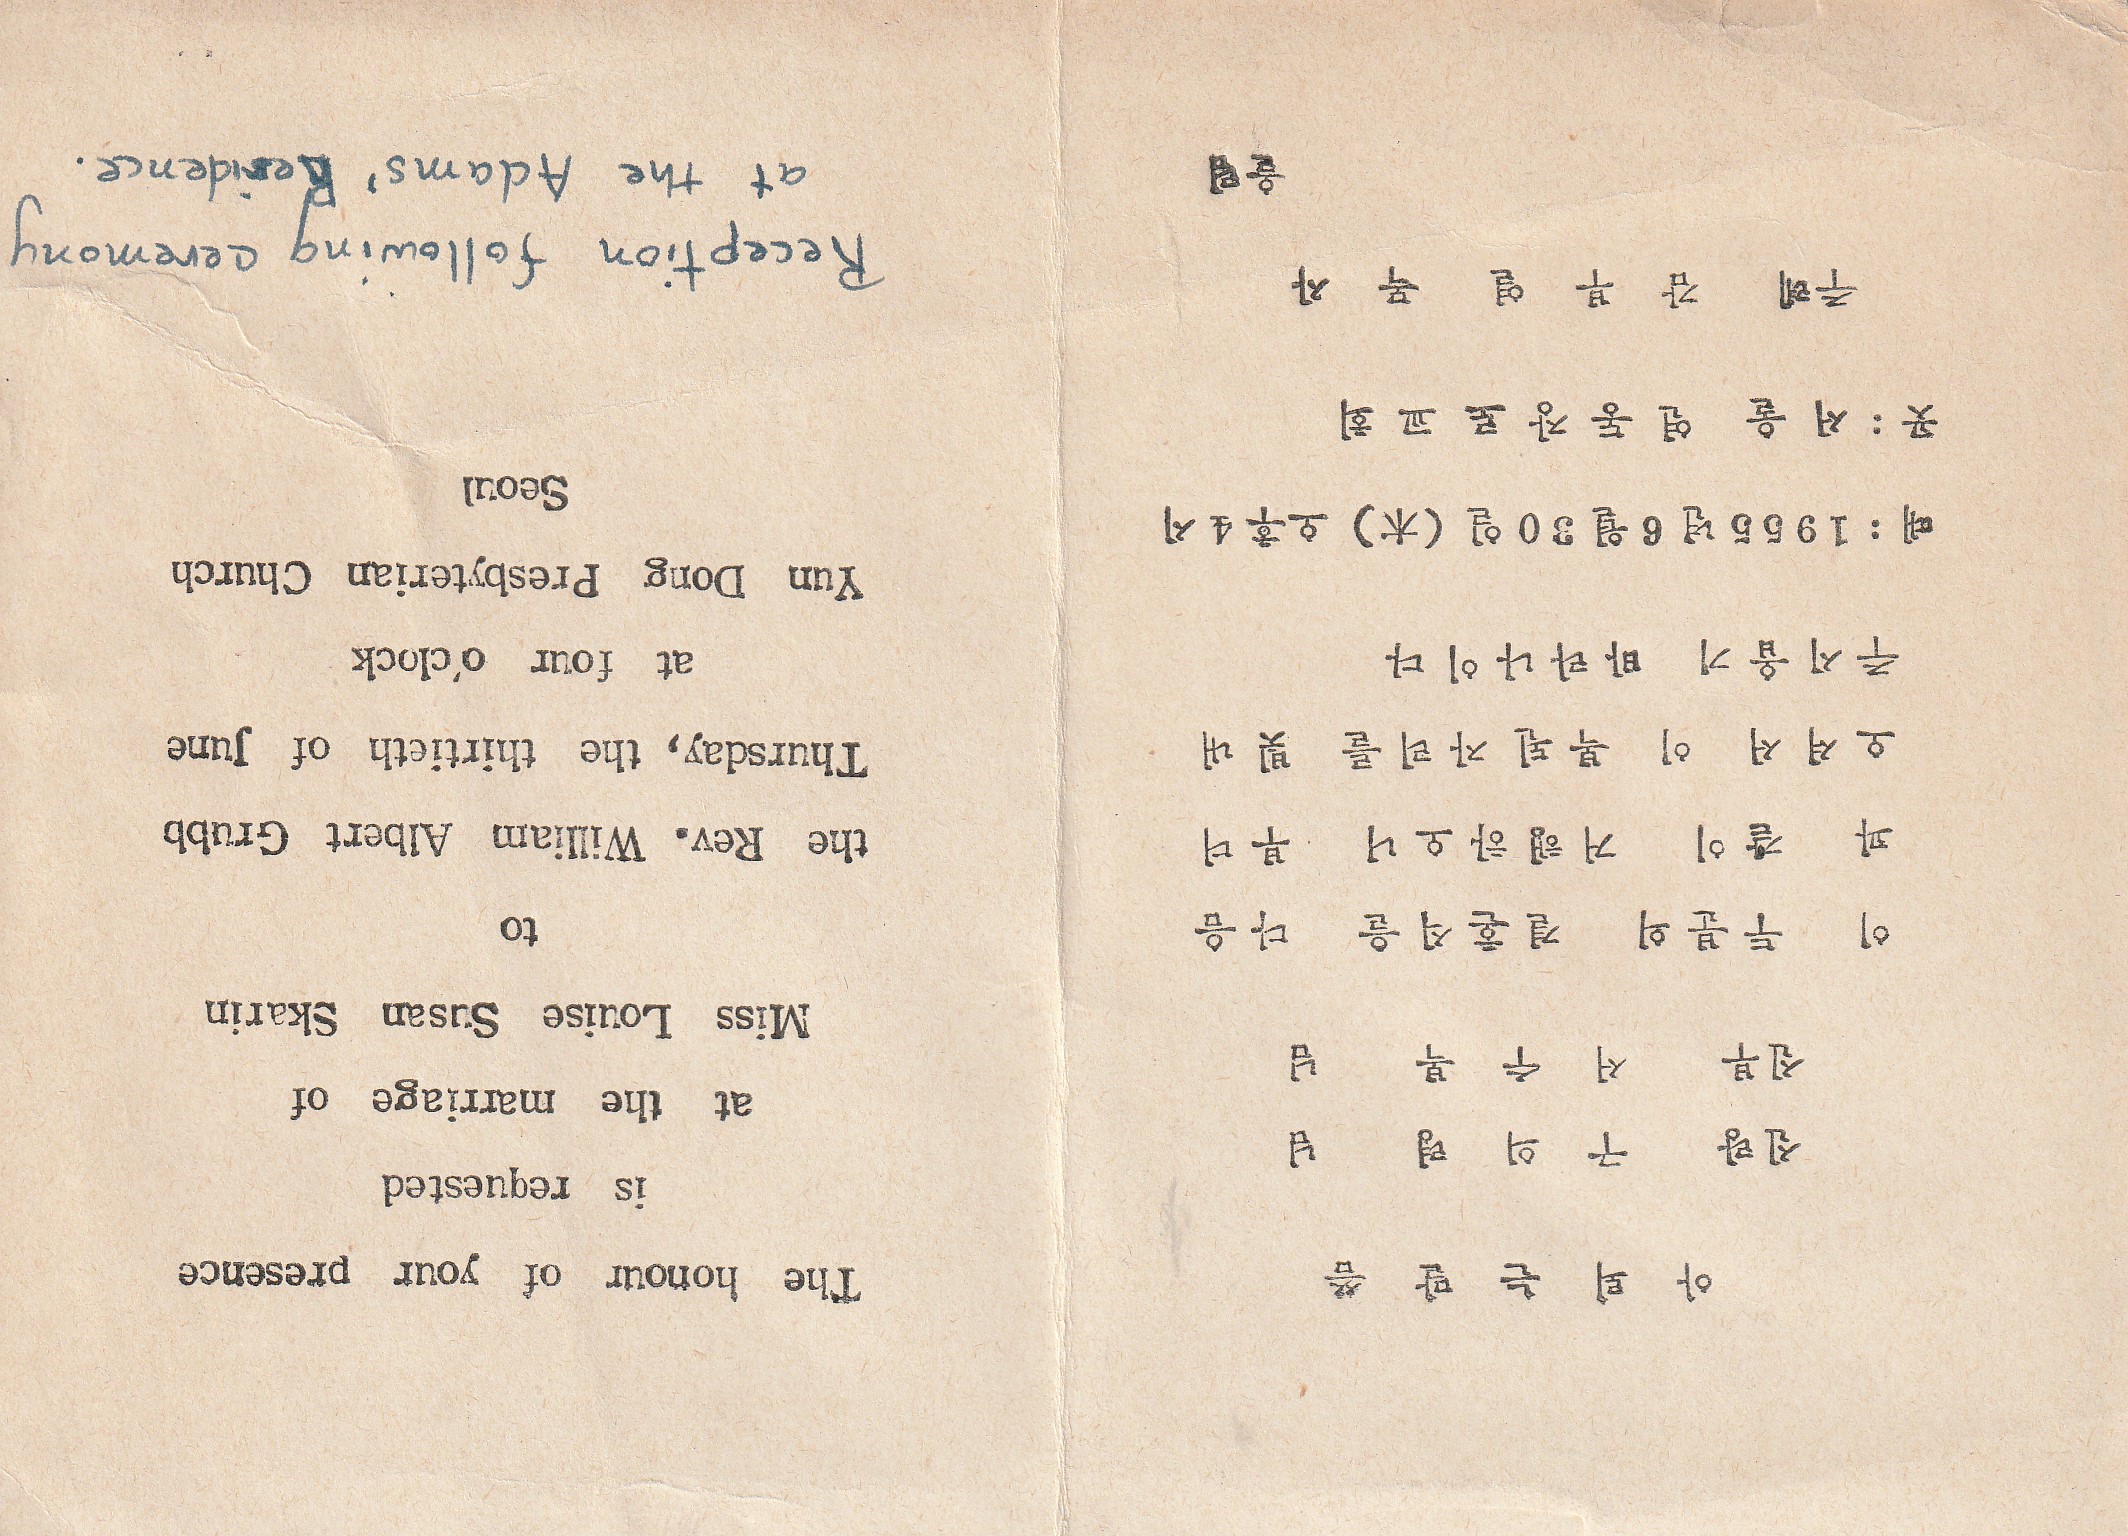 아 뢰 는 말 씀
신랑 구 의 령 님
신부 서 수 복 님
이 두분의 결혼식을 다음
과 같이 거행하오니 부디
오셔서 이 복된자리를 빛내
주시옵기 바라나이다
때:1955년6월30일(木)오후4시
곳:서울 연동장로교회
주례 감 부 열 목 사
올림
The honour of your presence
is requested
at the marriage of
Miss Louise Susan Skarin
to
the Rev. William Albert Grubb
Thursday, the thirtieth of June
at four o'clock
Yun Dong Presbyterian Church
Seoul
Reception following ceremony
at the Adams' Residence.